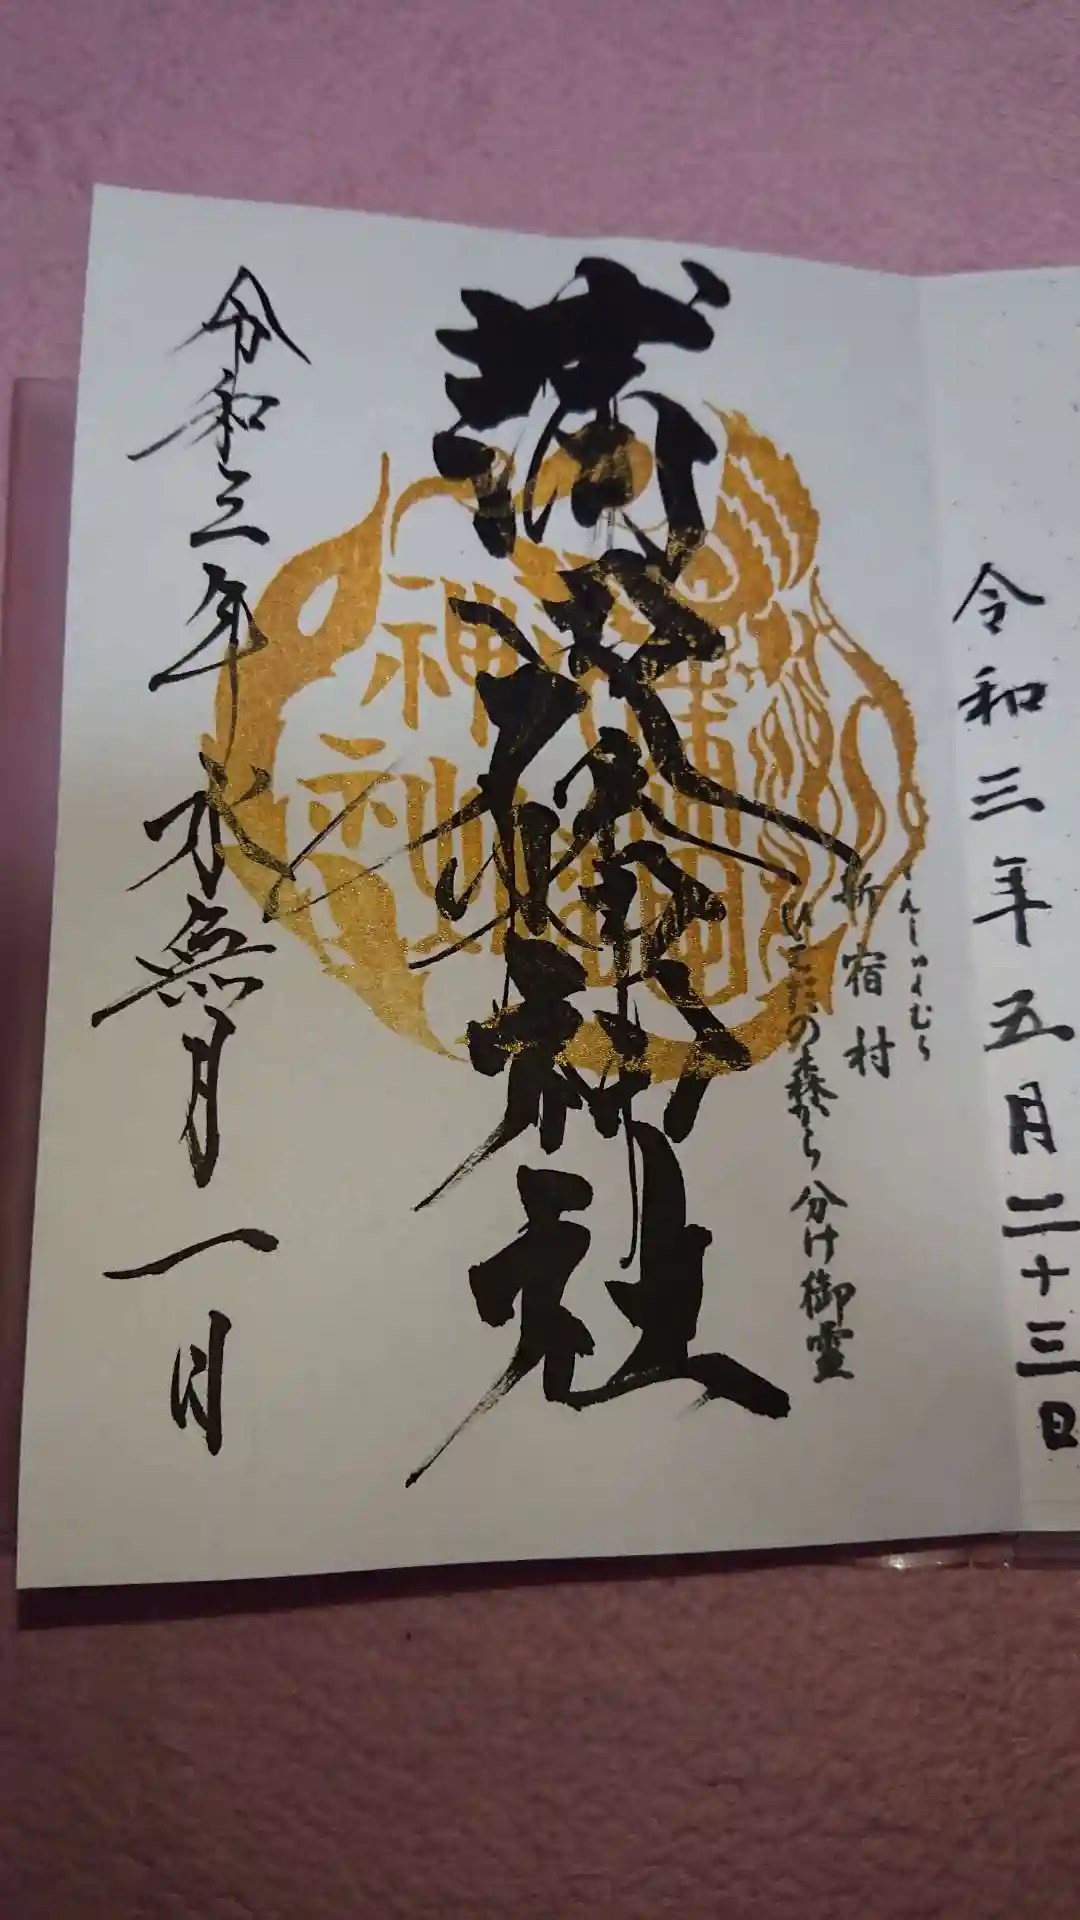 令和三年五月二十三日
しんしゅくむら
新宿村
ひえだの森から分け御霊
蒲田八幡神社
令和三年水無月一日